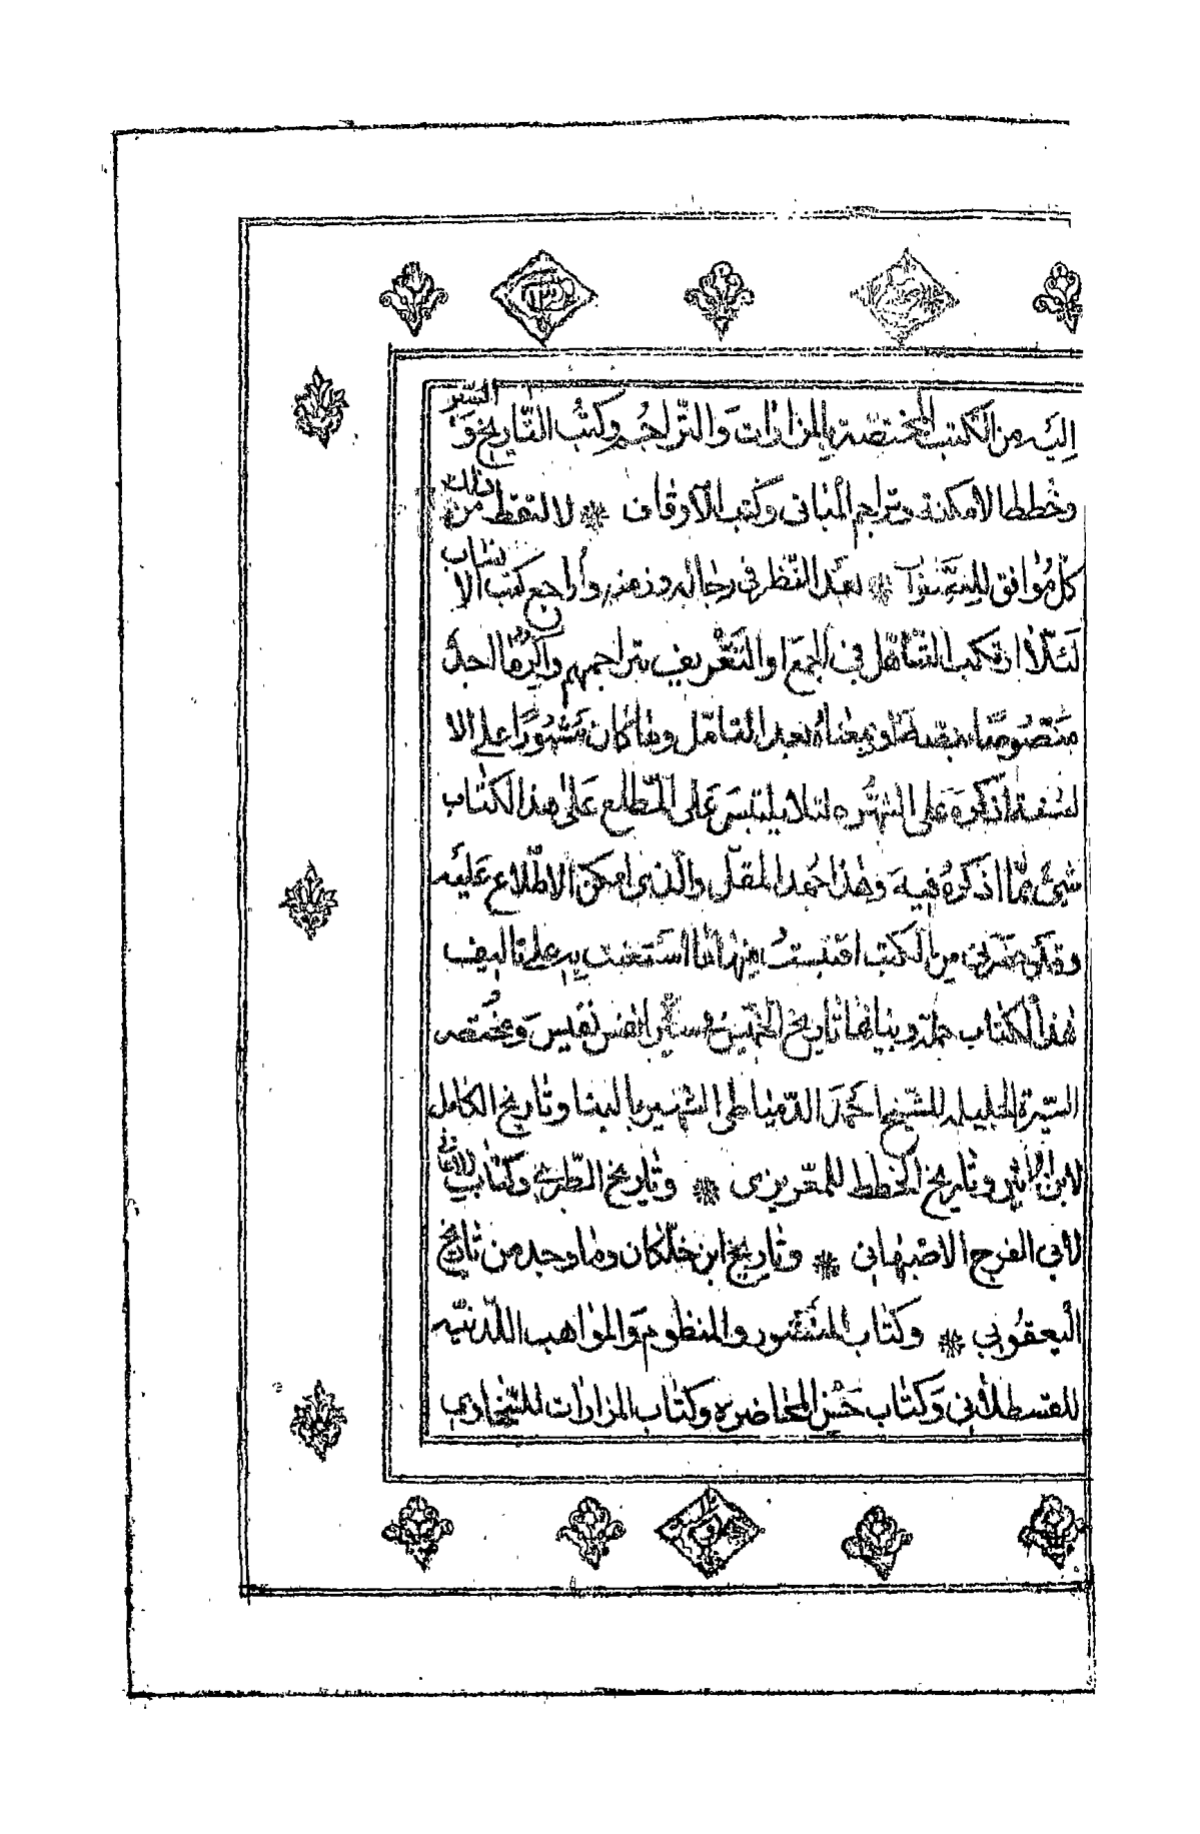 إليه من الكتب المختصة بالمزارات والتراجم وكتب التاريخ و السير
وخطط الامكنة وتراجم المباني وكتب الاوقاف لالتقط من ذلك
كل موافق بعد النظر في رجاله وزمنه وأراجع كتب الا نساب
لئلا ارتكب التساهل في الجمع والتعريف بتراجمهم واكرها لجد
منصوصا بنصه او بمعناه بعد التامل وما كان مشهورا على الا
لسنة اذكره على الشهره لئلا يلتبس على المطلع على هذا الكتاب
شيئ مما اذكره فيه وهذا جهد المقل والذي امكن الاطلاع عليه
وقد حضرني من الكتب اقتبست منها ما استعنت به على تاليف
هذا الكتاب جملة وبيانها تاريخ الخميس في سير انفس نفيس ومختصر
السيرة الجليله للشيخ احمد الدمياطي الشهير بالبنا وتاريخ الكامل
لابن الاثير وتاريخ الخطط للمقريزي وتاريخ الطبري وكتاب الاغاني
لابي الفرج الاصبهاني وتاريخ ابن خلكان وما وجد من تاريخ
اليعقوبي وكتاب المنثور والمنظوم والمواهب اللدنيه
للقسطلاني وكتاب حسن المحاضره وكتاب المزارات للسخاوي